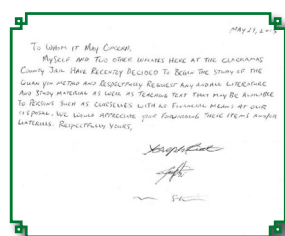 MAY 27, 2015
TO WHOM IT MAY CONCERN.
MYSELF AND TWO OTHER INMATES HERE AT THE CLACKAMAS
COUNTY JAIL HAVE RECENTLY DECIDED TO BEGIN THE STUDY OF THE
QUAN YIN METHOD AND RESPECTFULLY REQUEST ANY AND ALL LITERATURE
AND STUDY MATERIAL AS WELL AS TEACHING TEXT THAT MAY BE AVAILABLE
TO PERSONS SUCH AS OURSELVES WITH NO FINANCIAL MEANS AT OUR
DISPOSAL. WE WOULD APPRECIATE YOUR FORWARDING THESE ITEMS AND/OR
MATERIALS. RESPECTFULLY YOURS,